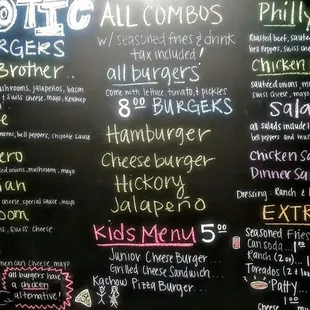 OTIC
BURGERS
Brother..
mushrooms, jalapeños, bacon
& swiss cheese, mayo, ketchup
mushrooms, bell peppers, chipotle sauce
onions, mushroom, mayo
cheese, special sauce, mayo
room
, Swiss Cheese
american Cheese, mayo
all burgers have
a chicken
alternative!
ALL COMBOS
w/ seasoned fries & drink
tax included!
all burgers
come with lettuce, tomato, & pickles
8.00 BURGERS
Hamburger
Cheeseburger
Hickory
Jalapeño
Kids Menu 5.00
Junior Cheese Burger...
Grilled Cheese Sandwich...
Kachow Pizza Burger...
Philly
Roast beef, sauteed
Bell Peppers, Swiss Chee
Chicken
sauteed onions, m
swiss cheese, mayo
Sala
all salads include l
bell peppers and mus
Chicken Sa
Dinner Sala
Dressing: Ranch &
EXTR
Seasoned Fries
Can Soda...1
Ranch (2oz)...1
Toreados (2)
Patty...
cheese